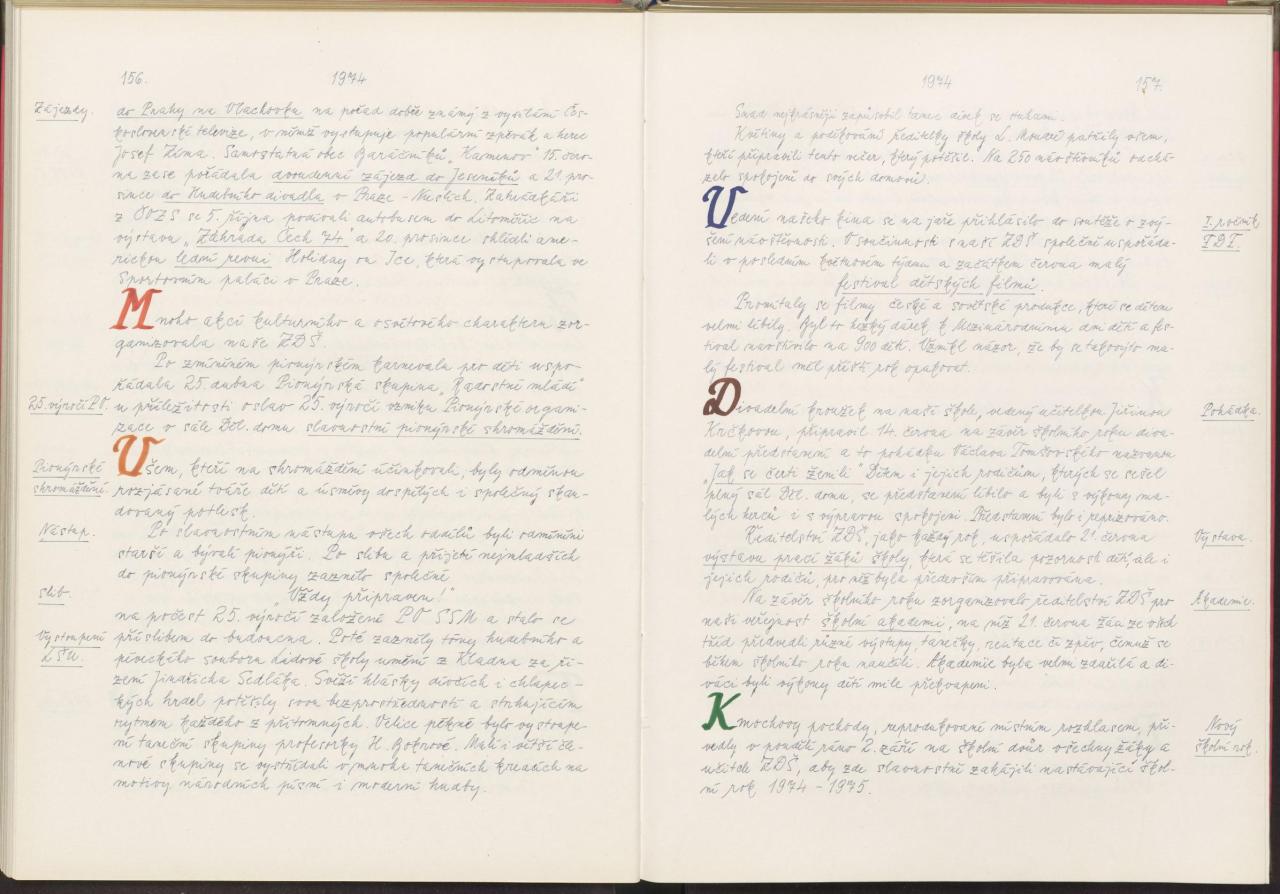 156.
1974
Zájezdy.
do Prahy na Vlachovku na pořad dobře známý z vysílání Čes-
koslovenské televize, v němž vystupuje populární zpěvák a herec
Josef Zíma. Samostatná obec Baráčníků „Karmenov" 15. červ-
na zase pořádala dvoudenní zájezd do Jeseníků a 21. pro-
since do Hudebního divadla v Praze - Nuslích. Zahrádkáři
z ČOZS se 5. října podívali autobusem do Litoměřic na
výstavu „Zahrada Čech 74" a 20. prosince shlédli ame-
rickou lední revui Holiday on Ice, která vystupovala ve
Sportovním paláci v Praze.
Mnoho akcí kulturního a osvětového charakteru zor-
ganizovala naše ZDŠ.
Po zmíněném pionýrském karnevalu pro děti uspo-
řádala 25. dubna Pionýrská skupina „Radostné mládí"
25. výročí PO.
u příležitosti oslav 25. výročí vzniku Pionýrské organi-
zace v sále Děl. domu slavnostní pionýrské shromáždění.
Pionýrské
shromáždění.
Všem, kteří na shromáždění účinkovali, byly odměnou
rozjásané tváře dětí a úsměvy dospělých i společný skan-
dovaný potlesk.
Nástup.
Po slavnostním nástupu všech oddílů byli odměněni
starší a bývalí pionýři. Po slibu a přijetí nejmladších
do pionýrské skupiny zaznělo společné
slib.
„Vždy připraven!"
na počest 25. výročí založení PO SSM a stalo se
Vystoupení
LŠU.
příslibem do budoucna. Poté zazněly tóny hudebního a
pěveckého souboru Lidové školy umění z Kladna za ří-
zení Jindřicha Sedláka. Svěží hlásky dívčích i chlapec-
kých hrdel potěšily svou bezprostředností a strhujícím
rytmem každého z přítomných. Velice pěkné bylo vystoupe-
ní taneční skupiny profesorky H. Boknové. Malí i větší čle-
nové skupiny se vystřídali v mnoha tanečních kreacích na
motivy národních písní i moderní hudby.
1974
157.
Snad nejkrásněji zapůsobil tanec dívek se stuhami.
Květiny a poděkování ředitelky školy L. Moucé patřily všem,
kteří připravili tento večer, který potěšil. Na 250 návštěvníků odchá-
zelo spokojeně do svých domovů.
I. ročník
FDF.
Vedení našeho kina se na jaře přihlásilo do soutěže o zvý-
šení návštěvnosti. V součinnosti s naší ZDŠ společně uspořáda-
li v posledním květnovém týdnu a začátkem června malý
festival dětských filmů.
Promítaly se filmy české a sovětské produkce, které se dětem
velmi líbily. Byl to hezký dárek k Mezinárodnímu dni dětí a fes-
tival navštívilo na 900 dětí. Vznikl názor, že by se takovýto ma-
lý festival měl příští rok opakovat.
Pohádka.
Divadelní kroužek na naší škole, vedený učitelkou Jiřinou
Krčkovou, připravil 14. června na závěr školního roku diva-
delní představení a to pohádku Václava Tomšovského nazvanou
„Jak se čerti ženili" Dětem i jejich rodičům, kterých se sešel
plný sál Děl. domu, se představení líbilo a byli s výkony ma-
lých herců i s výpravou spokojeni. Představení bylo i reprízováno.
Výstava.
Ředitelství ZDŠ, jako každý rok, uspořádalo 21. června
výstavu prací žáků školy, která se těšila pozornosti dětí, ale i
jejich rodičů, pro něž byla především připravována.
Akademie.
Na závěr školního roku zorganizovalo ředitelství ZDŠ pro
naši veřejnost školní akademii, na níž 21. června žáci ze všech
tříd předvedli různé výstupy, tanečky, recitace či zpěv, čemuž se
během školního roku naučili. Akademie byla velmi zdařilá a di-
váci byli výkony dětí mile překvapeni.
Nový
školní rok.
Kmochovy pochody, reprodukované místním rozhlasem, při-
vedly v pondělí ráno 2. září na školní dvůr všechny žáky a
učitele ZDŠ, aby zde slavnostně zahájili nastávající škol-
ní rok 1974 - 1975.